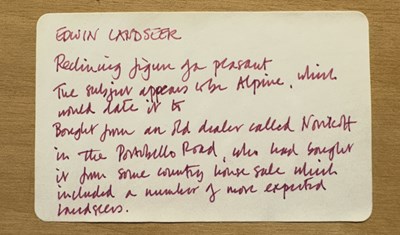 EDWIN LANDSEER
Reclining figure of a peasant
The subject appears to be Alpine, which
would date it to
Bought from an old dealer called
in the Portobello Road, who had bought
it from some country house sale which
included a number of more expected
Landseers.